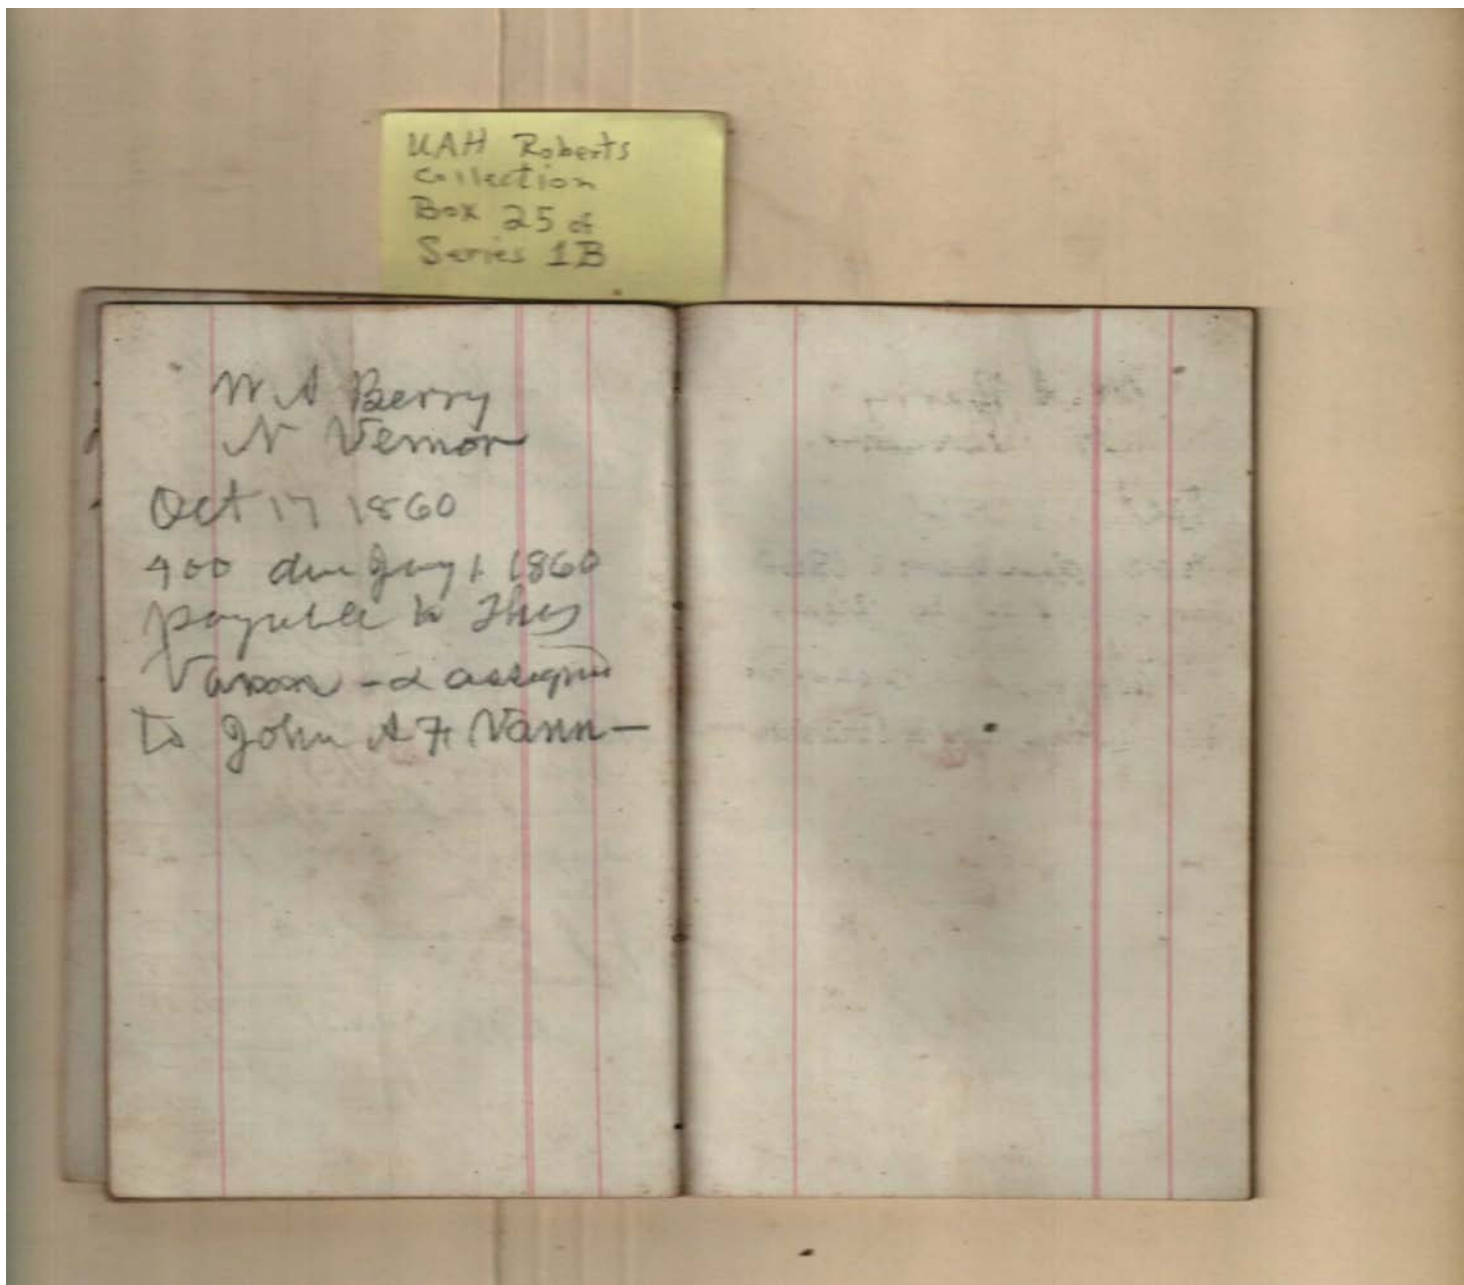 UAH Roberts
Collection
Box 25 of
Series 1B
W A Berry
N Vernon
Oct 17 1860
400 due Jany 1 1860
payable to Thos
Vann - & assigned
to John A F Vann —